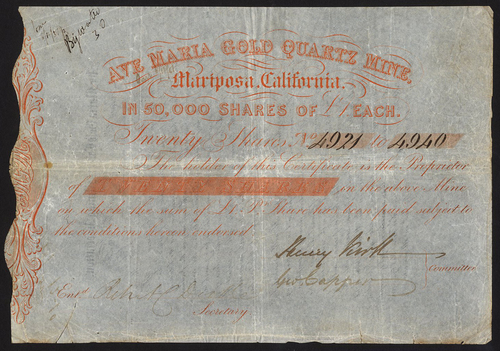 30
AVE MARIA GOLD QUARTZ MINE,
Mariposa, California.
IN 50,000 SHARES OF £1 EACH.
Twenty Shares, Nos. 4921 to 4940
The holder of this Certificate is the Proprietor
of TWENTY SHARES in the above Mine
on which the sum of £1 Pr. Share has been paid subject to
the conditions hereon endorsed
Henry Kirk
Geo Capper
Committee
Entd.
Secretary